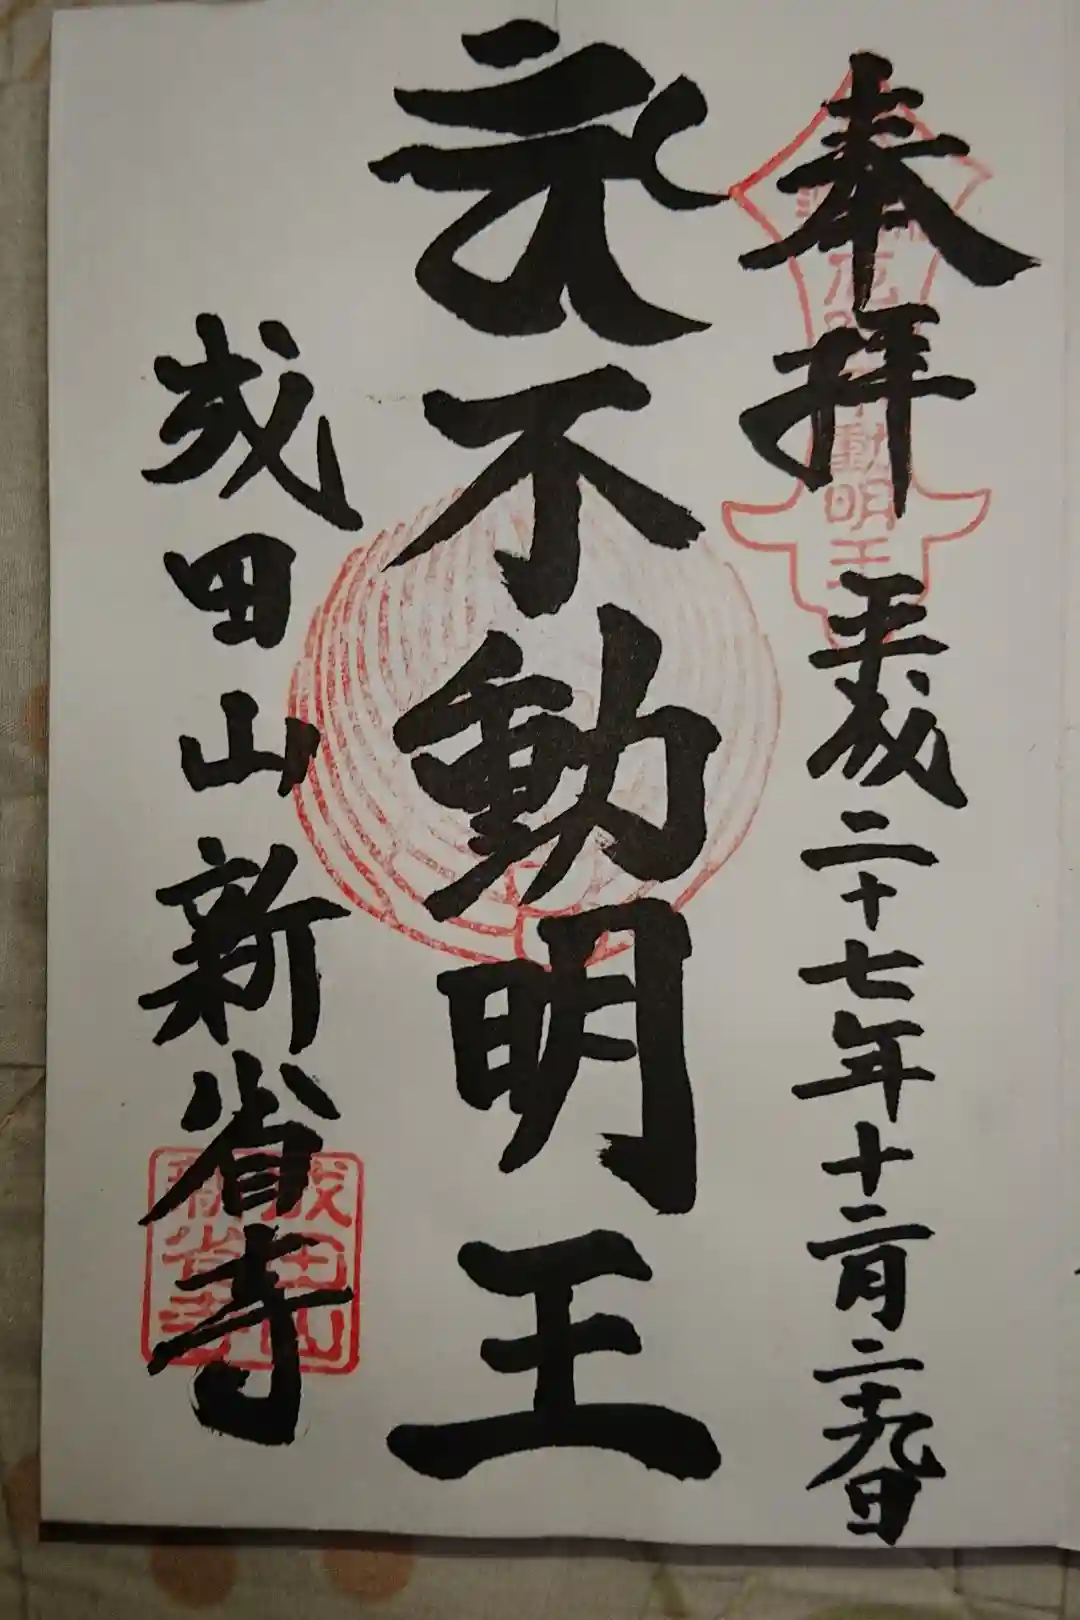 奉拝 平成二十七年十二月二十九日
不動明王
成田山新省寺
動明王
成田山
新省寺